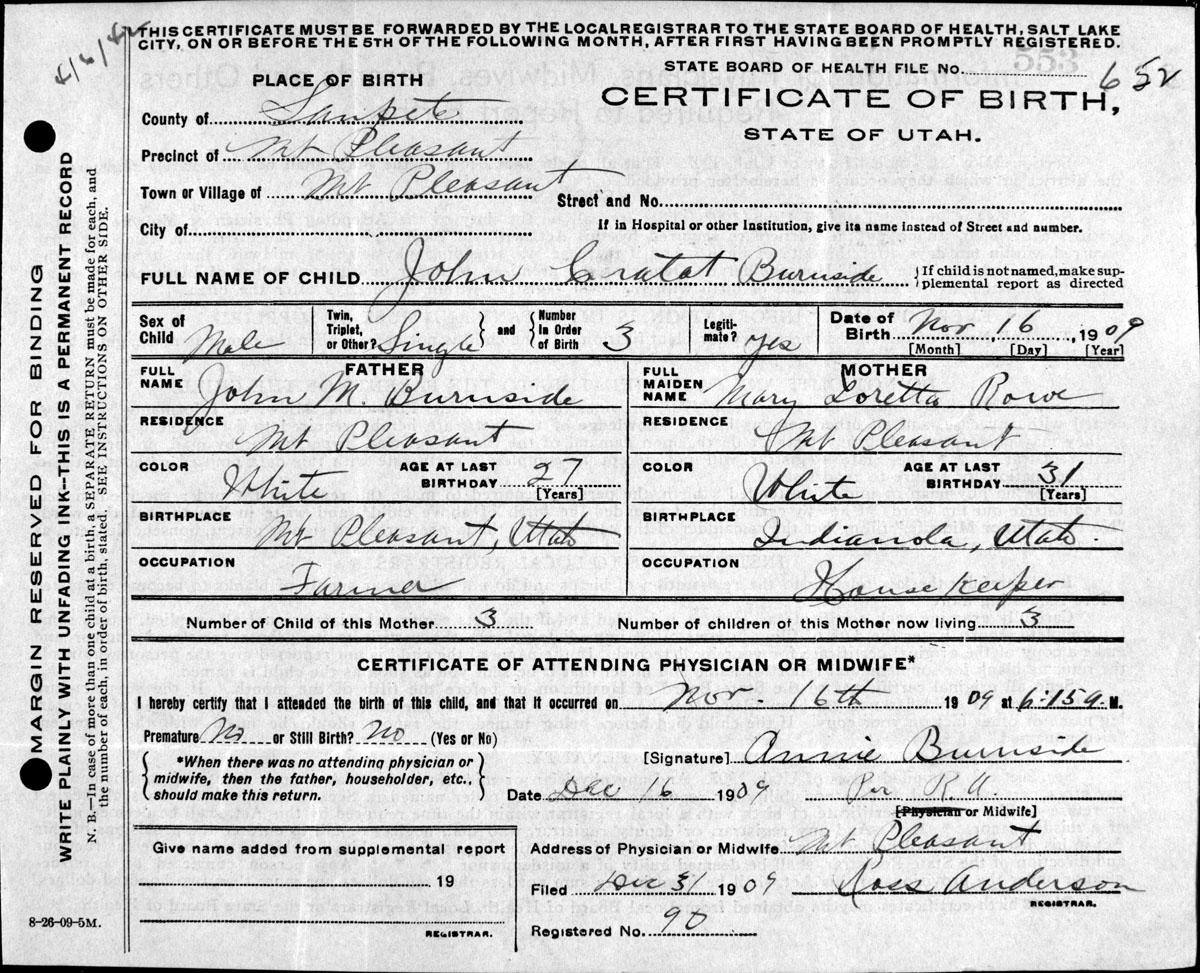 THIS CERTIFICATE MUST BE FORWARDED BY THE LOCAL REGISTRAR TO THE STATE BOARD OF HEALTH, SALT LAKE
CITY, ON OR BEFORE THE 5TH OF THE FOLLOWING MONTH, AFTER FIRST HAVING BEEN PROMPTLY REGISTERED.
STATE BOARD OF HEALTH FILE No. 652
PLACE OF BIRTH
CERTIFICATE OF BIRTH,
STATE OF UTAH.
County of Sanpete
Precinct of Mt Pleasant
Town or Village of Mt Pleasant
Street and No.
City of
If in Hospital or other Institution, give its name instead of Street and number.
FULL NAME OF CHILD John Burnside {If child is not named, make sup-
plemental report as directed
Sex of Child Male Twin, Triplet, or Other? Single } and { Number In Order of Birth 3 Legiti-mate? yes Date of Birth Nov 16, 1909
[Month] [Day] [Year]
FATHER
FULL NAME John M. Burnside
RESIDENCE Mt Pleasant
COLOR White AGE AT LAST BIRTHDAY 27 [Years]
BIRTHPLACE Mt Pleasant, Utah
OCCUPATION Farmer
MOTHER
FULL MAIDEN NAME Mary Loretta Rowe
RESIDENCE Mt Pleasant
COLOR White AGE AT LAST BIRTHDAY 31 [Years]
BIRTHPLACE Indianola, Utah
OCCUPATION House Keeper
Number of Child of this Mother 3 Number of children of this Mother now living 3
CERTIFICATE OF ATTENDING PHYSICIAN OR MIDWIFE*
I hereby certify that I attended the birth of this child, and that it occurred on Nov. 16th 1909 at 6:15 a. M.
Premature No or Still Birth? No (Yes or No)
*When there was no attending physician or
midwife, then the father, householder, etc.,
should make this return.
[Signature] Annie Burnside
Date Dec 16 1909 Per R.A.
[Physician or Midwife]
Give name added from supplemental report
19
REGISTRAR.
Address of Physician or Midwife Mt Pleasant
Filed Dec 31 1909 Ross Anderson
REGISTRAR.
Registered No. 90
8-26-09-5M.
MARGIN RESERVED FOR BINDING
WRITE PLAINLY WITH UNFADING INK--THIS IS A PERMANENT RECORD
N. B.—In case of more than one child at a birth, a SEPARATE RETURN must be made for each, and
the number of each, in order of birth, stated. SEE INSTRUCTIONS ON OTHER SIDE.